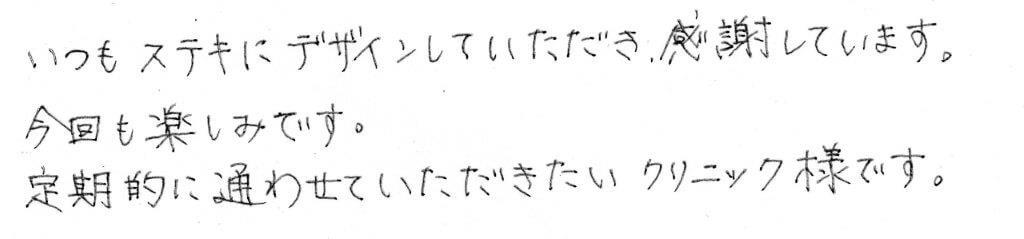 いつもステキにデザインしていただき、感謝しています。
今回も楽しみです。
定期的に通わせていただきたいクリニック様です。